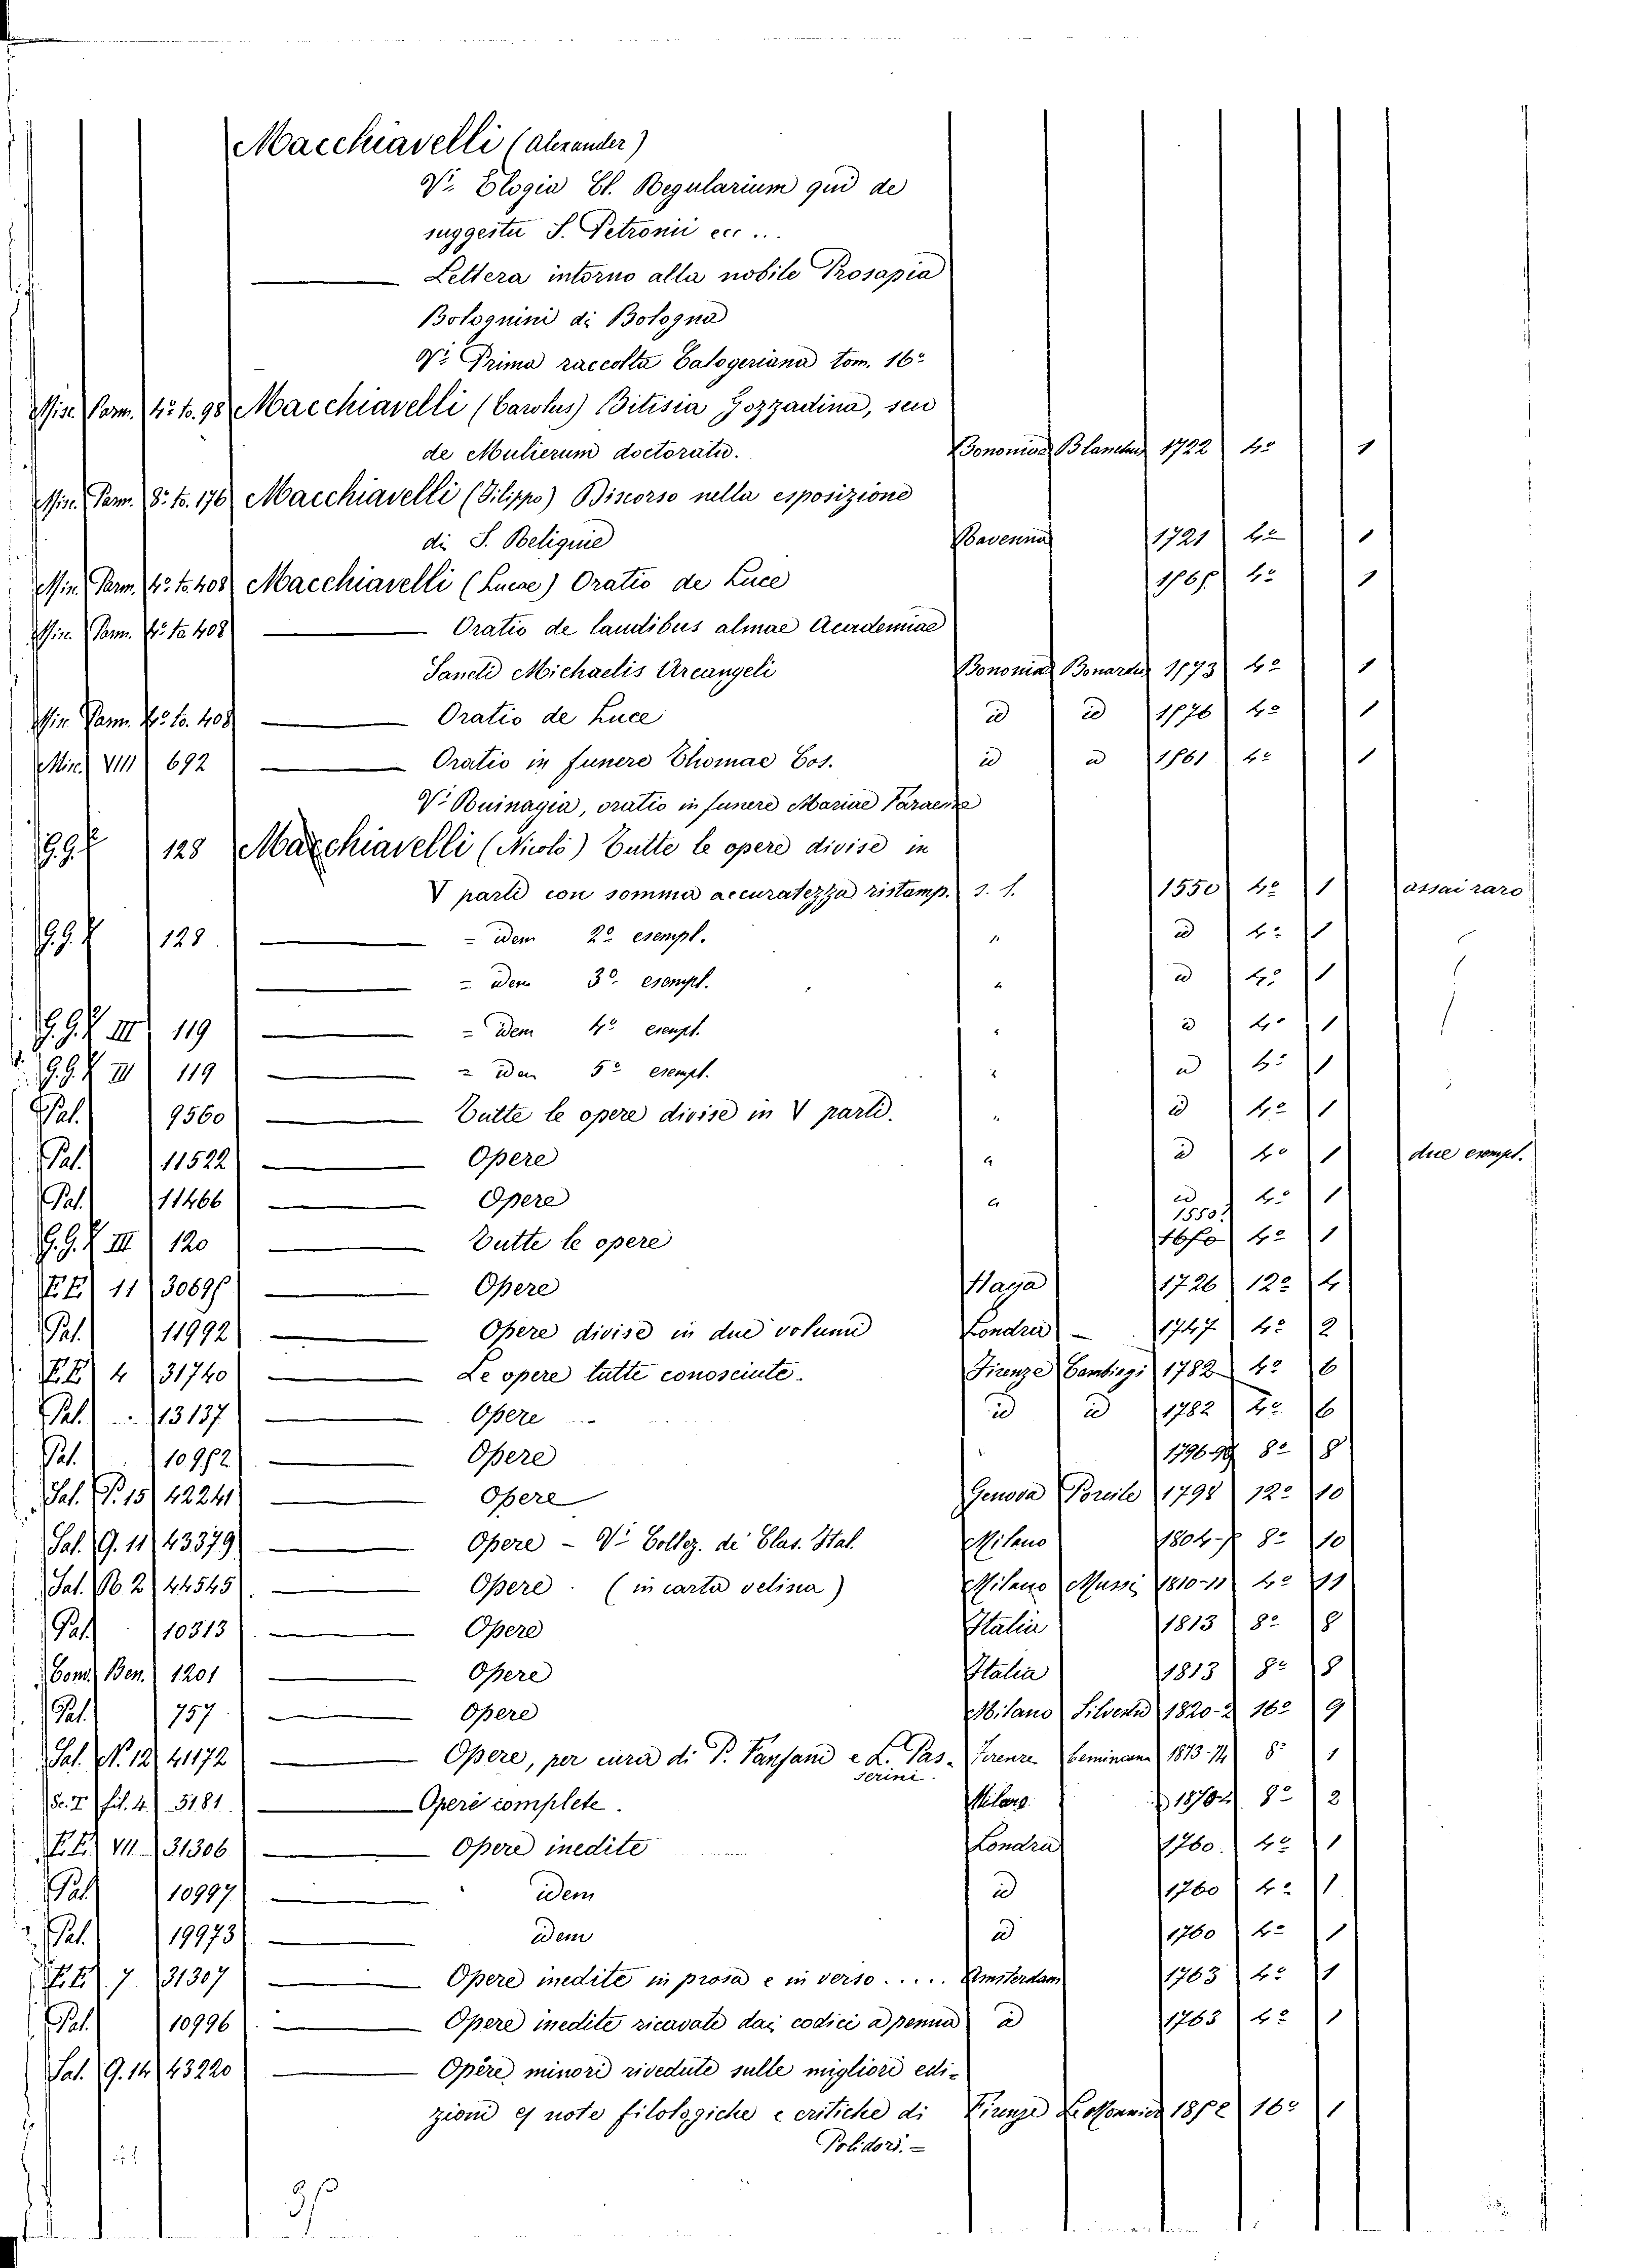 Macchiavelli (Alexander)
V. Elogia Cl. Regularium qui de
suggestu S. Petronii ecc ...
Lettera intorno alla nobile Prosapia
Bolognini di Bologna
V. Prima raccolta Calogeriana tom. 16º
Misc. Parm. 4º to. 98 Macchiavelli (Carolus) Bitisia Gozzadina, seu
de Mulierum doctoratu. Bononiae Blanchus 1722 4º 1
Misc. Parm. 8º to. 176 Macchiavelli (Filippo) Discorso nella esposizione
di S. Reliquie Ravenna 1721 4º 1
Misc. Parm. 4º to. 408 Macchiavelli (Lucae) Oratio de Luce 4º 1
Misc. Parm. 4º to 408 Oratio de laudibus almae Academiae
Sancti Michaelis Arcangeli Bononiae Bonardus 4º 1
Misc. Parm. 4º to. 408 Oratio de Luce id id 4º 1
Misc. VIII 692 Oratio in funere Thomae Cos. id id 4º 1
V. Ruinagia, oratio in funere Mariae
128 Macchiavelli (Nicolò) Tutte le opere divise in
V parti con somma accuratezza ristamp. s. l. 1550 4º 1 assai raro
128 = idem 2º esempl. " id 4º 1
= idem 3º esempl. " id 4º 1
III 119 = idem 4º esempl. " id 4º 1
III 119 = idem 5º esempl. " id 4º 1
Pal. 9560 Tutte le opere divise in V parti. " id 4º 1
Pal. 11522 Opere " id 4º 1 due esempl.
Pal. 11466 Opere " id 4º 1
III 120 Tutte le opere 1550. 4º 1
11 Opere Haga 1726 12º 4
Pal. 11992 Opere divise in due volumi Londra – 1747 4º 2
4 31740 Le opere tutte conosciute. Firenze Cambiagi 1782 4º 6
Pal. 13137 Opere id id 1782 4º 6
Pal. Opere 1796-99 8º 8
Sal. P. 15 42241 Opere Genova Porcile 1798 12º 10
Sal. G. 11 43379 Opere – V. Collez. di Clas. Ital. Milano 8º 10
Sal. 2 44545 Opere. (in carta velina) Milano Mussi 1810-11 4º 11
Pal. 10313 Opere Italia 1813 8º 8
Cons. Ben. 1201 Opere Italia 1813 8º 8
Pal. 757 Opere Milano Silvestri 1820-2 16º 9
Sal. N. 12 41172 Opere, per cura di P. Fanfani e L. Pas- Firenze 8º 1
serini.
fil. 4. 5181 Opere complete. Milano 8º 2
VII 31306 Opere inedite Londra 1760. 4º 1
Pal. 10997. idem id 1760 4º 1
Pal. 19973 idem id 1760 4º 1
7 31307 Opere inedite in prosa e in verso ..... Amsterdam 1763 4º 1
Pal. 10996 Opere inedite ricavate dai codici a penna id 1763 4º 1
Sal. G. 14 43220 Opere minori rivedute sulle migliori edi-
zioni e note filologiche e critiche di Firenze 16º 1
Polidori. –